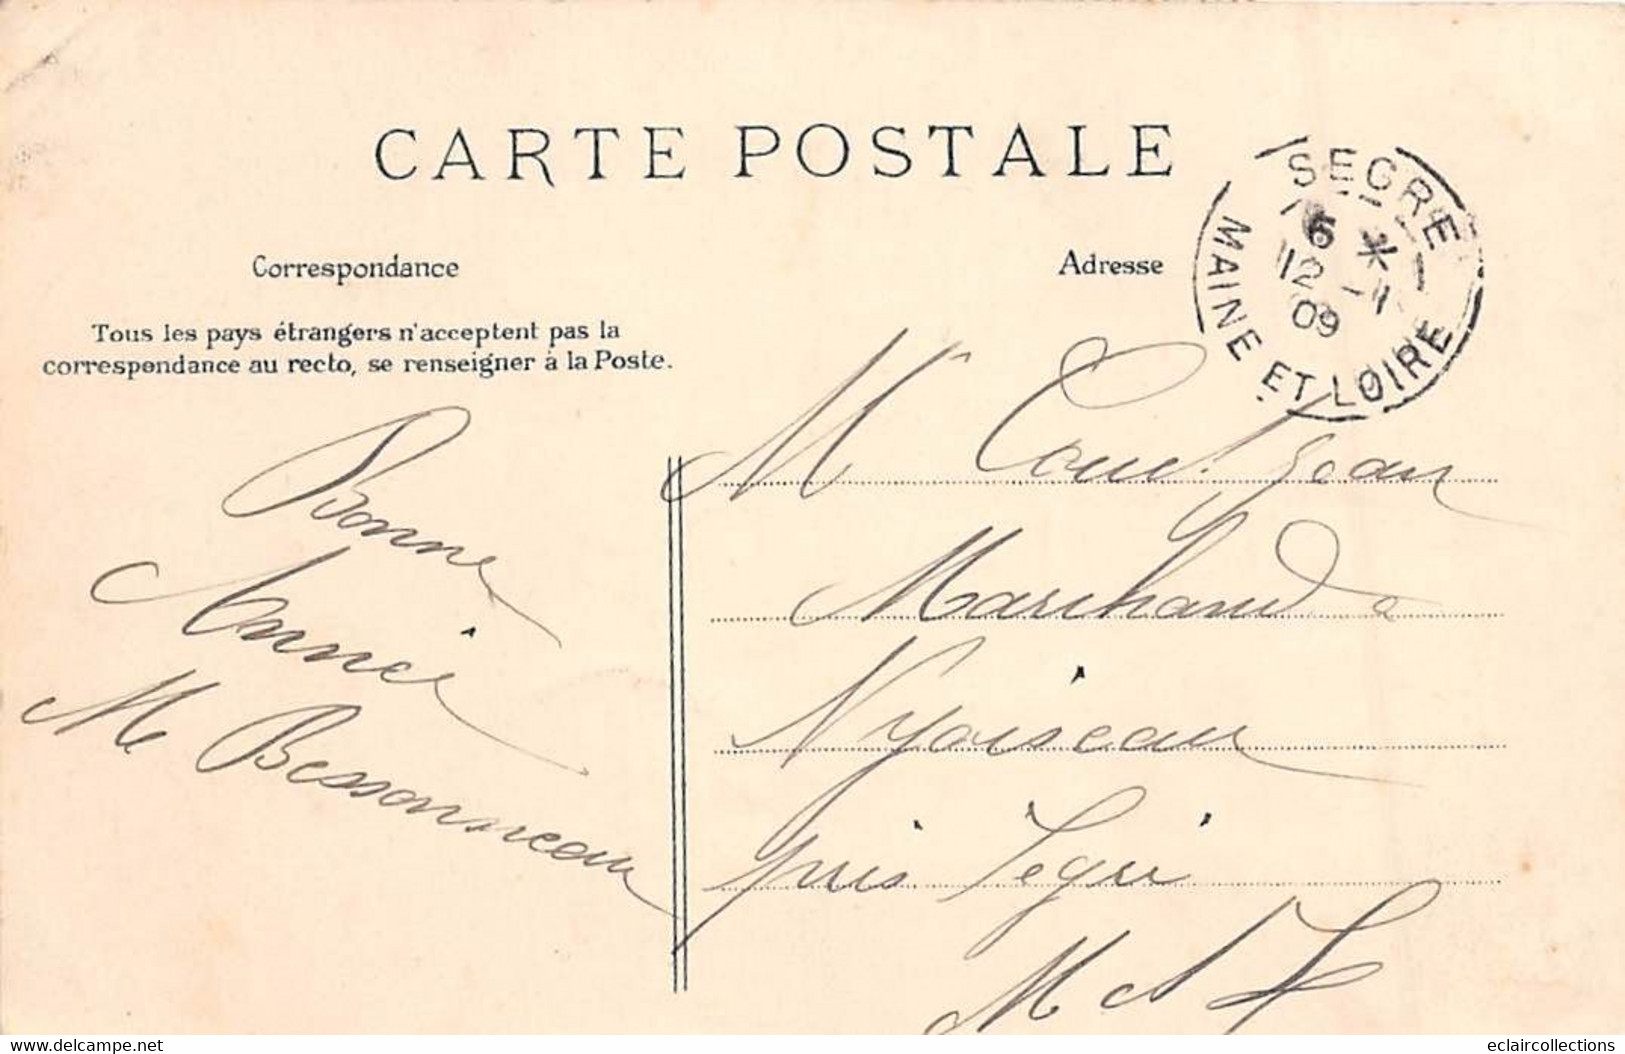 CARTE POSTALE
SEGRE
6 *
12 - 1
09
MAINE ET LOIRE
Correspondance
Adresse
Tous les pays étrangers n'acceptent pas la
correspondance au recto, se renseigner à la Poste.
Bonne
Année
M Bessonneau
M Jean
Marchand à
Nyoiseau
près Segré
M et L
delcampe.net
eclaircollections